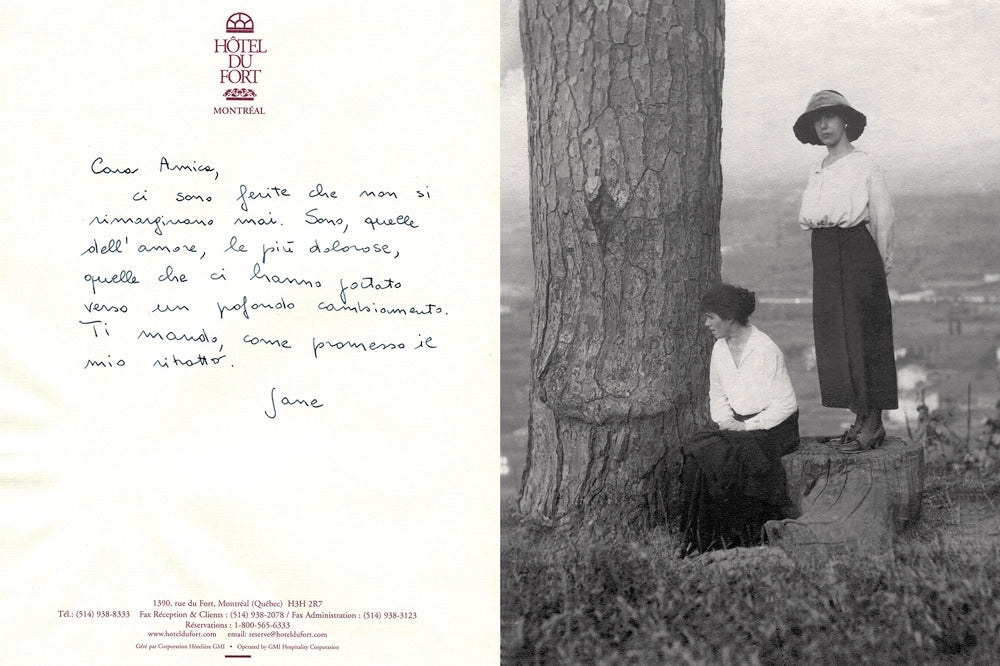 HÔTEL
DU
FORT
MONTRÉAL
Cara Amica,
ci sono ferite che non si
rimarginano mai. Sono, quelle
dell'amore, le più dolorose,
quelle che ci hanno portato
verso un profondo cambiamento.
Ti mando, come promesso il
mio ritratto.
Jane
1390, rue du Fort, Montréal (Québec) H3H 2R7
Tél.: (514) 938-8333 Fax Réception & Clients : (514) 938-2078 / Fax Administration : (514) 938-3123
Réservations : 1-800-565-6333
www.hoteldufort.com email: reserve@hoteldufort.com
Géré par Corporation Hôtelière GMI • Operated by GMI Hospitality Corporation